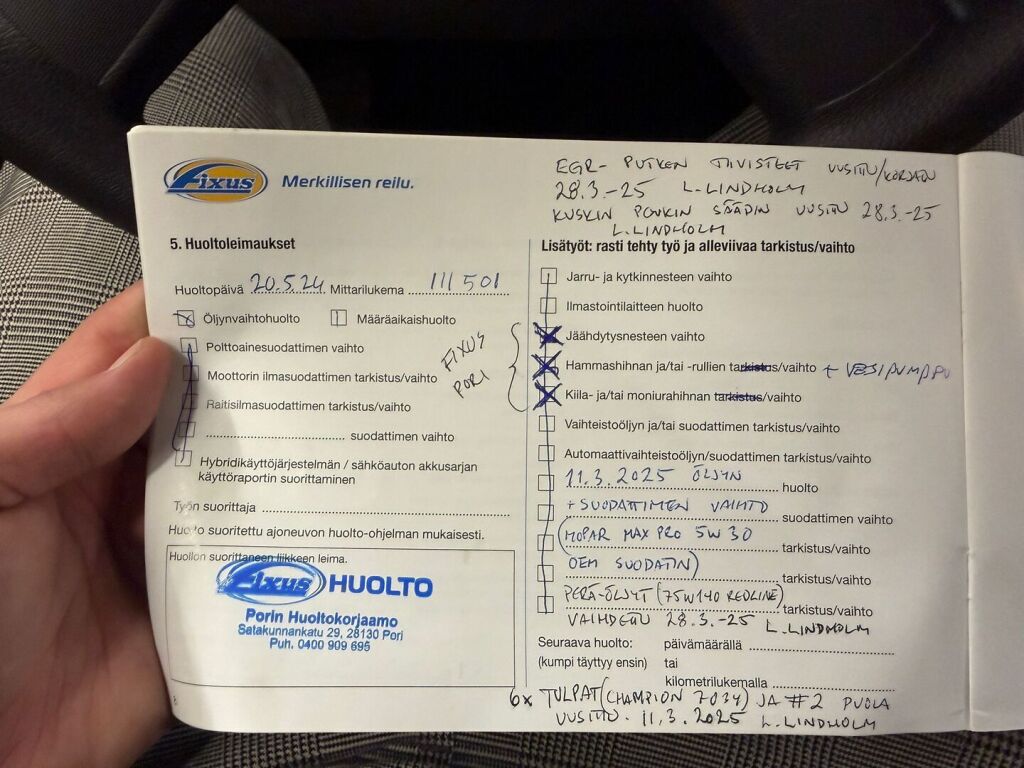 Fixus
Merkillisen reilu.
EGR- PUTKEN TIIVISTEET UUSITU/KORJATU
28.3.-25 L.LINDHOLM
KUSKIN PENKIN SÄÄDIN UUSITU 28.3.-25
L.LINDHOLM
5. Huoltoleimaukset
Huoltopäivä 20.5.24 Mittarilukema 111501
Öljynvaihtohuolto Määräaikaishuolto
Polttoainesuodattimen vaihto
Moottorin ilmasuodattimen tarkistus/vaihto
Raitisilmasuodattimen tarkistus/vaihto
suodattimen vaihto
Hybridikäyttöjärjestelmän / sähköauton akkusarjan
käyttöraportin suorittaminen
Työn suorittaja
Huolto suoritettu ajoneuvon huolto-ohjelman mukaisesti.
Huollon suorittaneen liikkeen leima.
Fixus HUOLTO
Porin Huoltokorjaamo
Satakunnankatu 29, 28130 Pori
Puh. 0400 909 695
8
FIXUS
PORI
Lisätyöt: rasti tehty työ ja alleviivaa tarkistus/vaihto
Jarru- ja kytkinnesteen vaihto
Ilmastointilaitteen huolto
Jäähdytysnesteen vaihto
Hammashihnan ja/tai -rullien tarkistus/vaihto + VESIPUMPPU
Kiila- ja/tai moniurahihnan tarkistus/vaihto
Vaihteistoöljyn ja/tai suodattimen tarkistus/vaihto
Automaattivaihteistoöljyn/suodattimen tarkistus/vaihto
11.3.2025 ÖLJYN huolto
+SUODATTIMEN VAIHTO suodattimen vaihto
(MOPAR MAX PRO 5W30 tarkistus/vaihto
OEM SUODATIN) tarkistus/vaihto
PERÄ-ÖLJYT (75W140 REDLINE) tarkistus/vaihto
VAIHDETTU 28.3.-25 L.LINDHOLM
Seuraava huolto: päivämäärällä
(kumpi täyttyy ensin) tai
kilometrilukemalla
6x TULPAT (CHAMPION 7034) JA #2 PUOLA
UUSITU. 11.3.2025 L.LINDHOLM